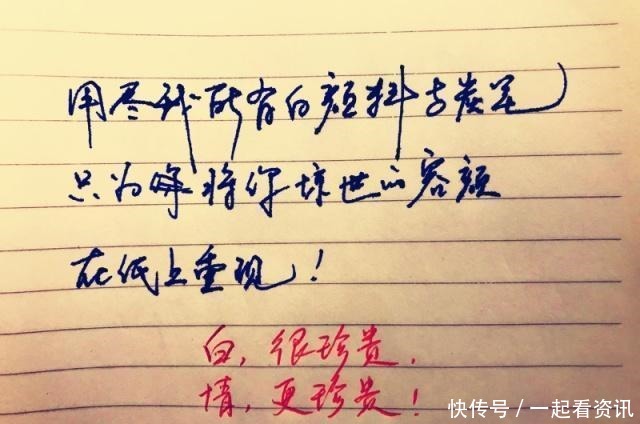 用尽我所有的颜料与炭笔
只为将你惊世的容颜
在纸上重现！
白，很珍贵，
情，更珍贵！
快传号／一起看资讯